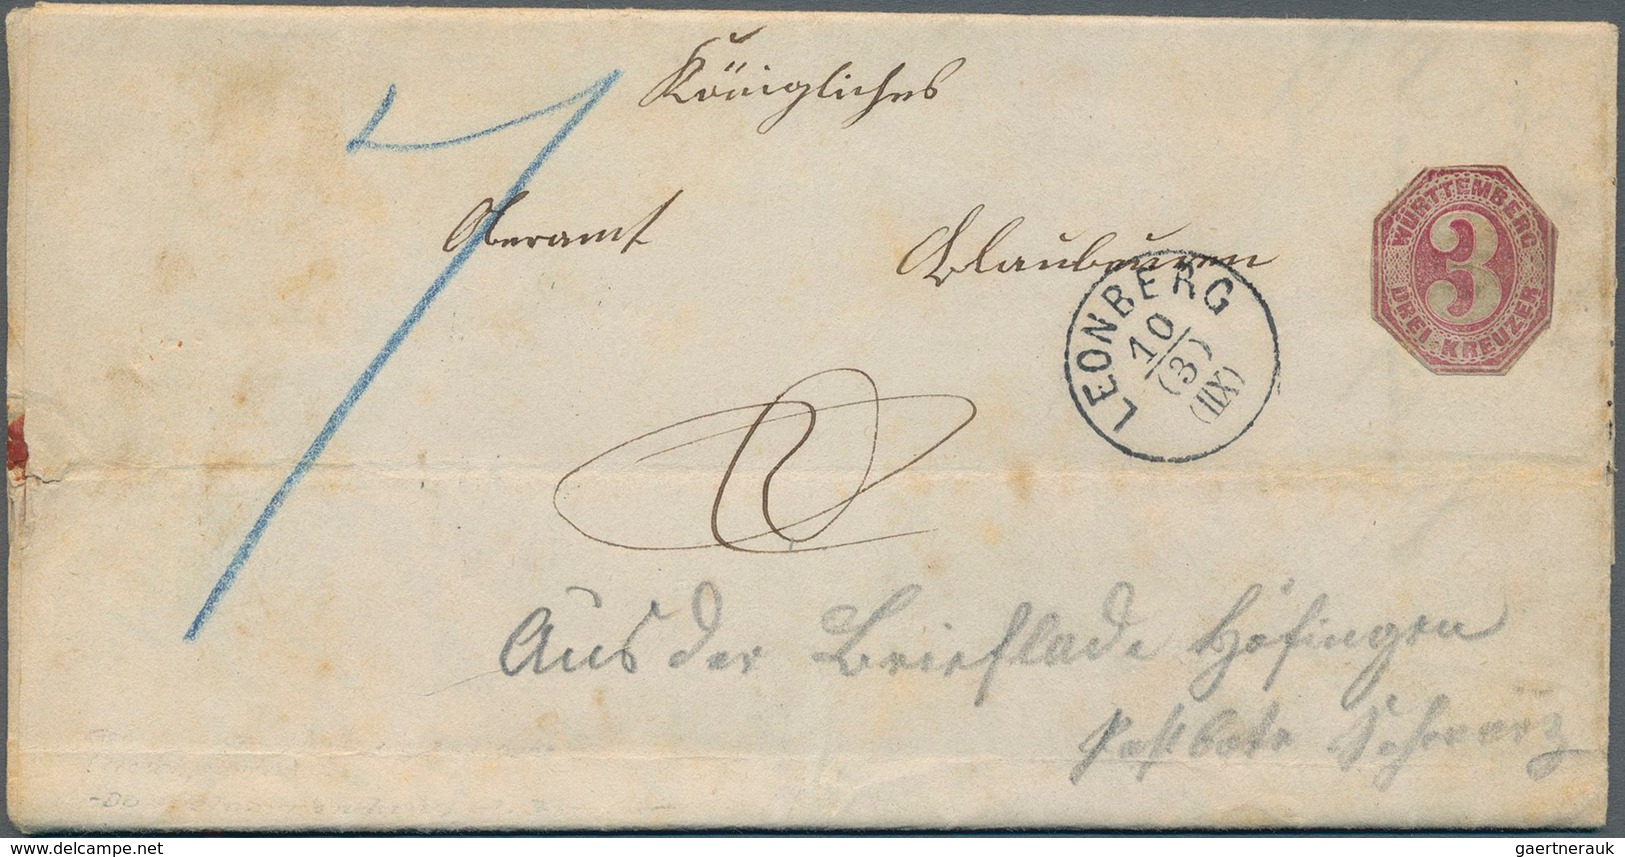 Königliches
Oberamt Blaubeuren
WÜRTTEMBERG
3
DREI KREUZER
LEONBERG
10
(3)
(IIX)
7
Aus der Brieflade Höfingen
Postbote Schwarz
delcampe.net
gaertnerauk